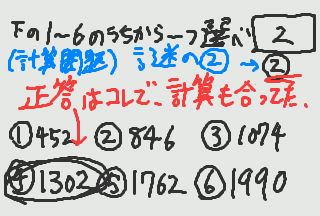 下の1〜6のうちから一つ選べ 2
(計算問題) 誤迷の② → ②
正答はコレで、計算も合ってた。
①452 ②846 ③1074
④1302 ⑤1762 ⑥1990